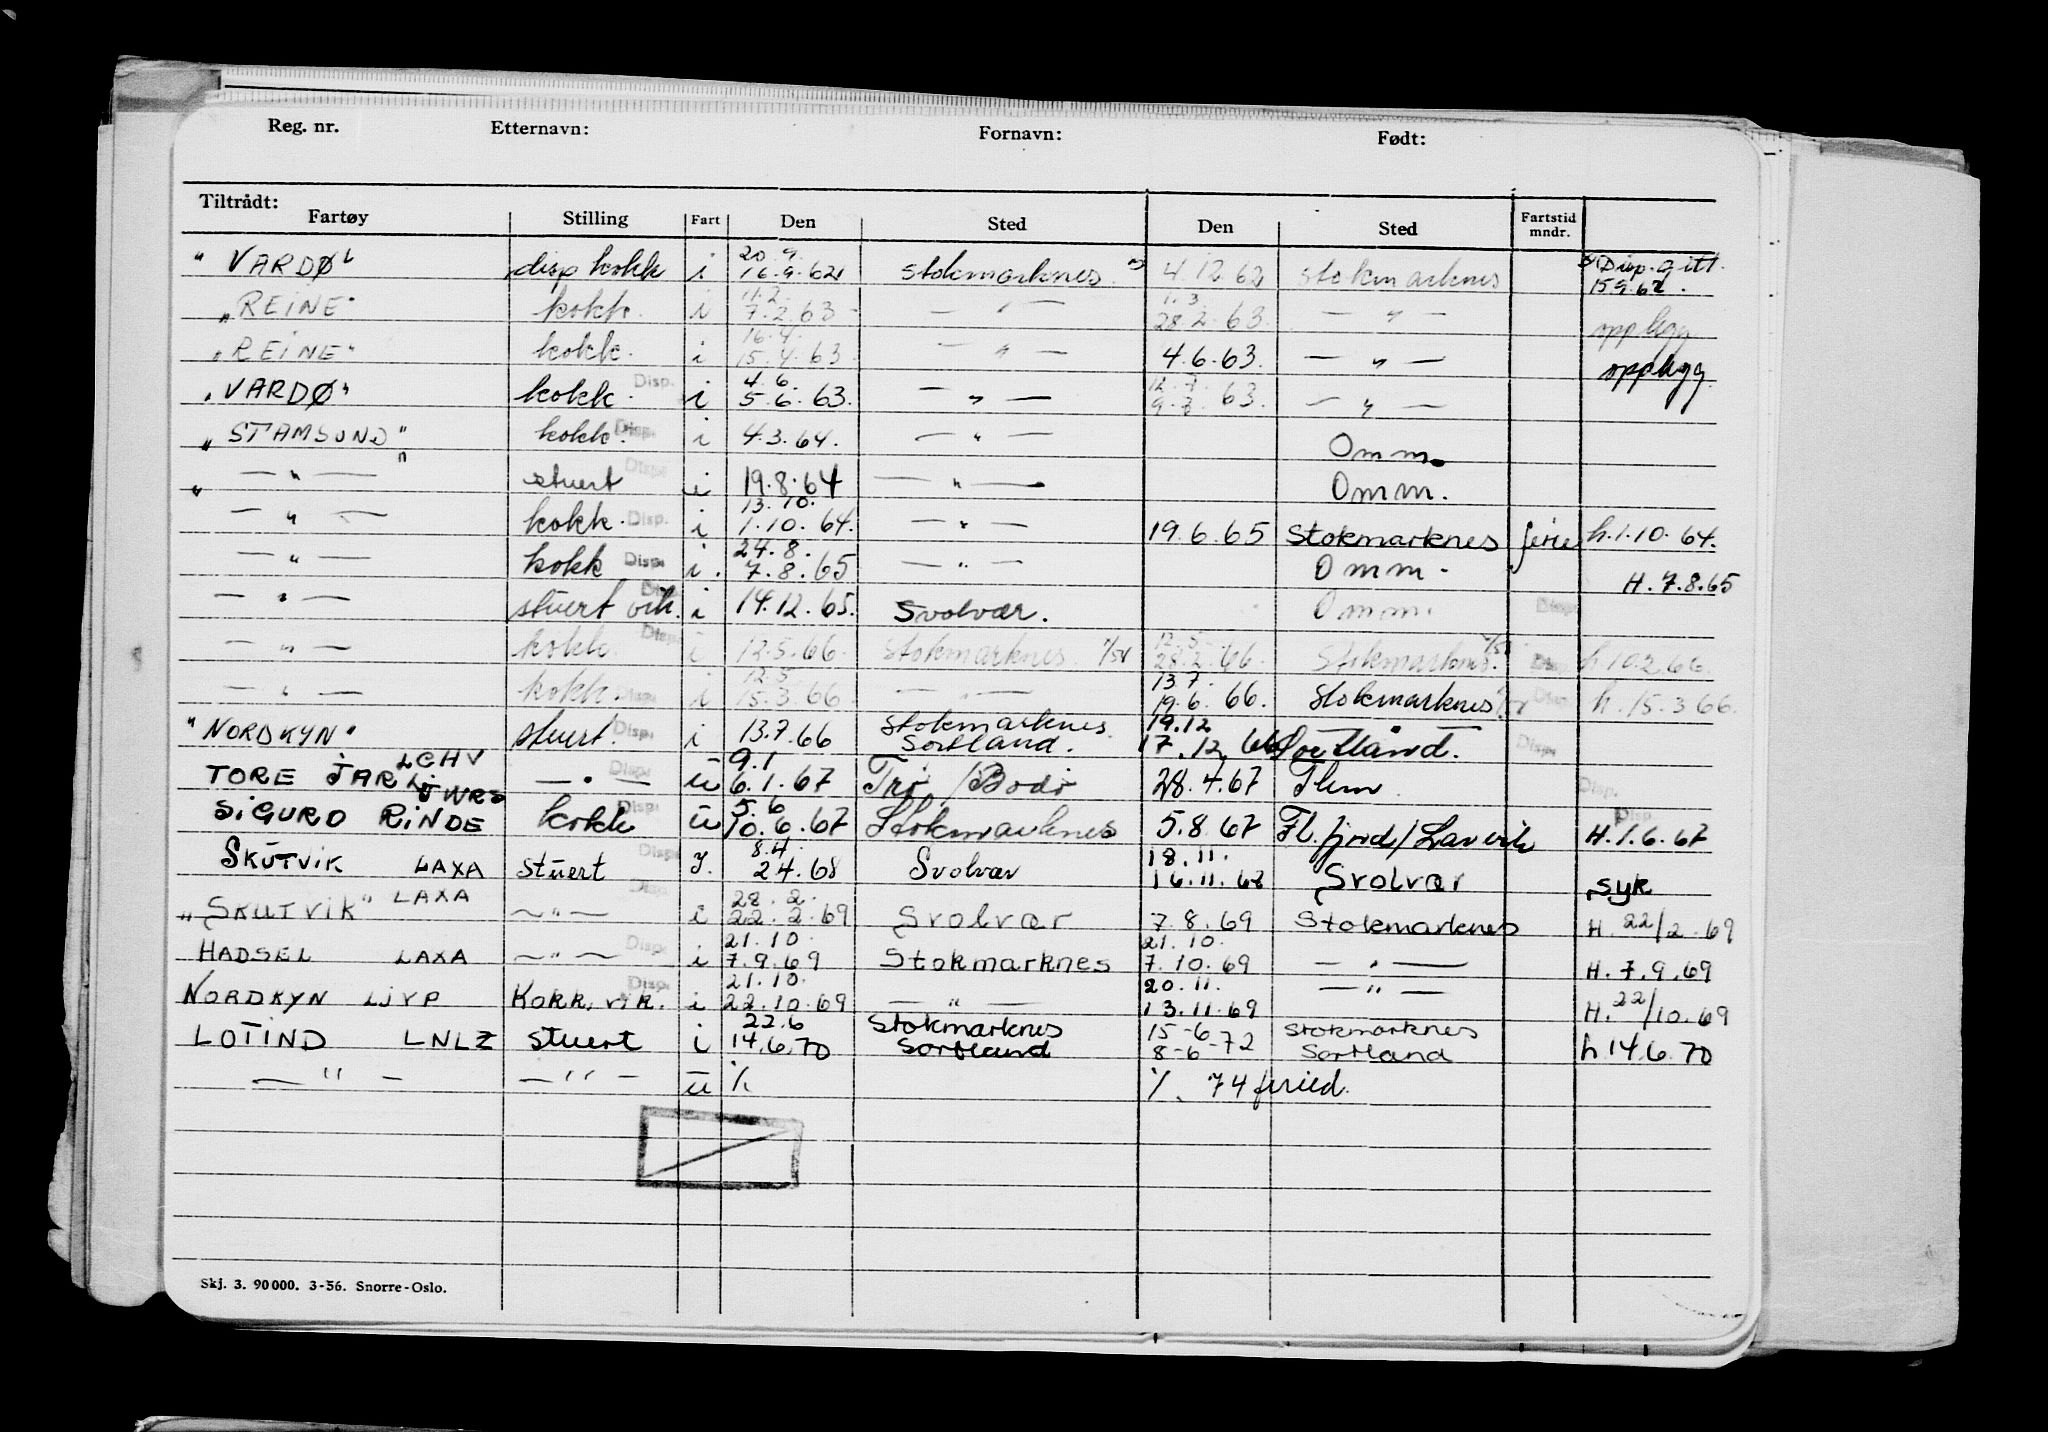 Reg. nr. Etternavn: Fornavn: Født:
Tiltrådt:
Fartøy Stilling Fart Den Sted Den Sted Fartstid mndr.
20.9.
"VARDØ" disp kokk i 16.9.62 Stokmarknes 4.12.62 Stokmarknes Disp. gitt 15.9.62.
11.2. 1.3.
"REINE" kokk. i 7.2.63 — " — 28.2.63. — " — opplegg
16.4.
"REINE" kokk. i 15.4.63. — " — 4.6.63. — " — opplegg
4.6. 12.7.
"VARDØ" kokk. Disp. i 5.6.63. — " — 9.7.63. — " —
"STAMSUND" kokk. Disp. i 4.3.64. — " — Omm.
— " — stuert Disp. i 19.8.64 — " — Omm.
13.10.
— " — kokk. Disp. i 1.10.64. — " — 19.6.65 Stokmarknes ferie h.1.10.64.
24.8.
— " — kokk Disp. i. 7.8.65 — " — Omm. H.7.8.65
— " — stuert vik. Disp. i 14.12.65. Svolvær. Omm. Disp.
12.5.
— " — kokk. Disp. i 12.5.66. Stokmarknes 28.2.66. Stokmarknes. Disp. h.10.2.66.
12.5 13.7.
— " — kokk. Disp. i 15.3.66. — " — 19.6.66. Stokmarknes Disp. h.15.3.66.
Stokmarknes. 19.12
"NORDKYN" stuert. Disp. i 13.7.66 Sortland. 17.12.66 Sortland. Disp.
LCHV 9.1
TORE JARL — " — Disp. u 6.1.67 Trø./Bodø 28.4.67 Thm. Disp.
LJWRS 5.6
SIGURD RINDE kokk Disp. u 10.6.67 Stokmarknes 5.8.67 Fl.fjord/Larvik Disp. H.1.6.67
8.4. 18.11.
SKUTVIK LAXA stuert Disp. I. 2.4.68 Svolvær 16.11.68 Svolvær syk
LAXA 28.2.
"SKUTVIK" — " — Disp. i 22.2.69 Svolvær 7.8.69 Stokmarknes H. 22/2.69
21.10 21.10.
HADSEL LAXA — " — Disp. i 7.9.69 Stokmarknes 7.10.69 — " — H.7.9.69
21.10. 20.11.
NORDKYN LJVP KOKK, vik. Disp. i 22.10.69 — " — 13.11.69 — " — H. 22/10.69
22.6 Stokmarknes 15-6- Stokmarknes
LOTIND LNLZ stuert i 14.6.70 Sortland 8-6-72 Sortland h 14.6.70
— " — — " — u ./. ./. 74
Skj. 3. 90000. 3-56. Snorre-Oslo.